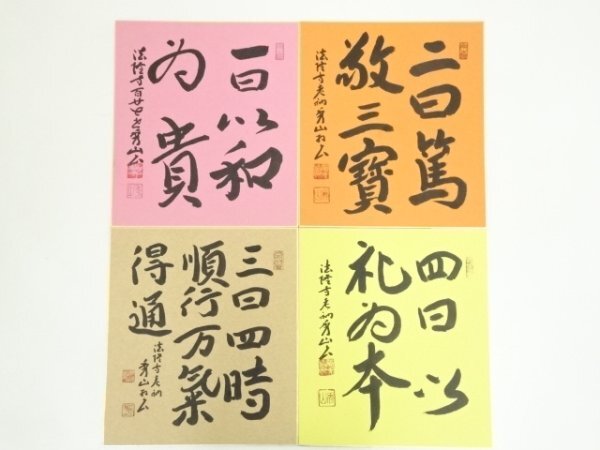 一曰以和
為貴
法隆寺百廿世秀山
二曰篤
敬三寶
法隆寺老衲秀山
三曰四時
順行万氣
得通
法隆寺老衲
秀山
四曰以
礼為本
法隆寺老衲秀山